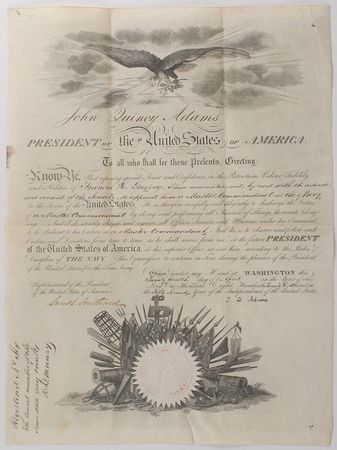 John Quincy Adams
PRESIDENT OF the United States OF AMERICA.
To all who shall see these Presents, Greeting:
Know Ye, That reposing special Trust and Confidence in the Patriotism, Valour, Fidelity
and Abilities of Francis H. Gregory I have nominated, and by and with the advice
and consent of the Senate, do appoint him a Master Commandant in the Navy
in the Service of the United States. He is therefore carefully and diligently to discharge the Duties
of a Master Commandant by doing and performing all manner of Things thereunto belong-
ing. And I do strictly charge and require all Officers, Seamen and Marines under his Command
to be obedient to his Orders as a Master Commandant. And he is to observe and follow such
Orders and Directions from time to time as he shall receive from me, or the future PRESIDENT
of the United States of America, or his superior Officer set over him, according to the Rules &
Discipline of THE NAVY. This Commission to continue in force during the pleasure of the President
of the United States for the time being.
Given under my Hand at WASHINGTON this
day of April in the Year of our
Lord One Thousand Eight Hundred
Year of the Independence of the United States
By Command of the President
of the United States of America.
J. Q. Adams
Saml L. Southard
Registered